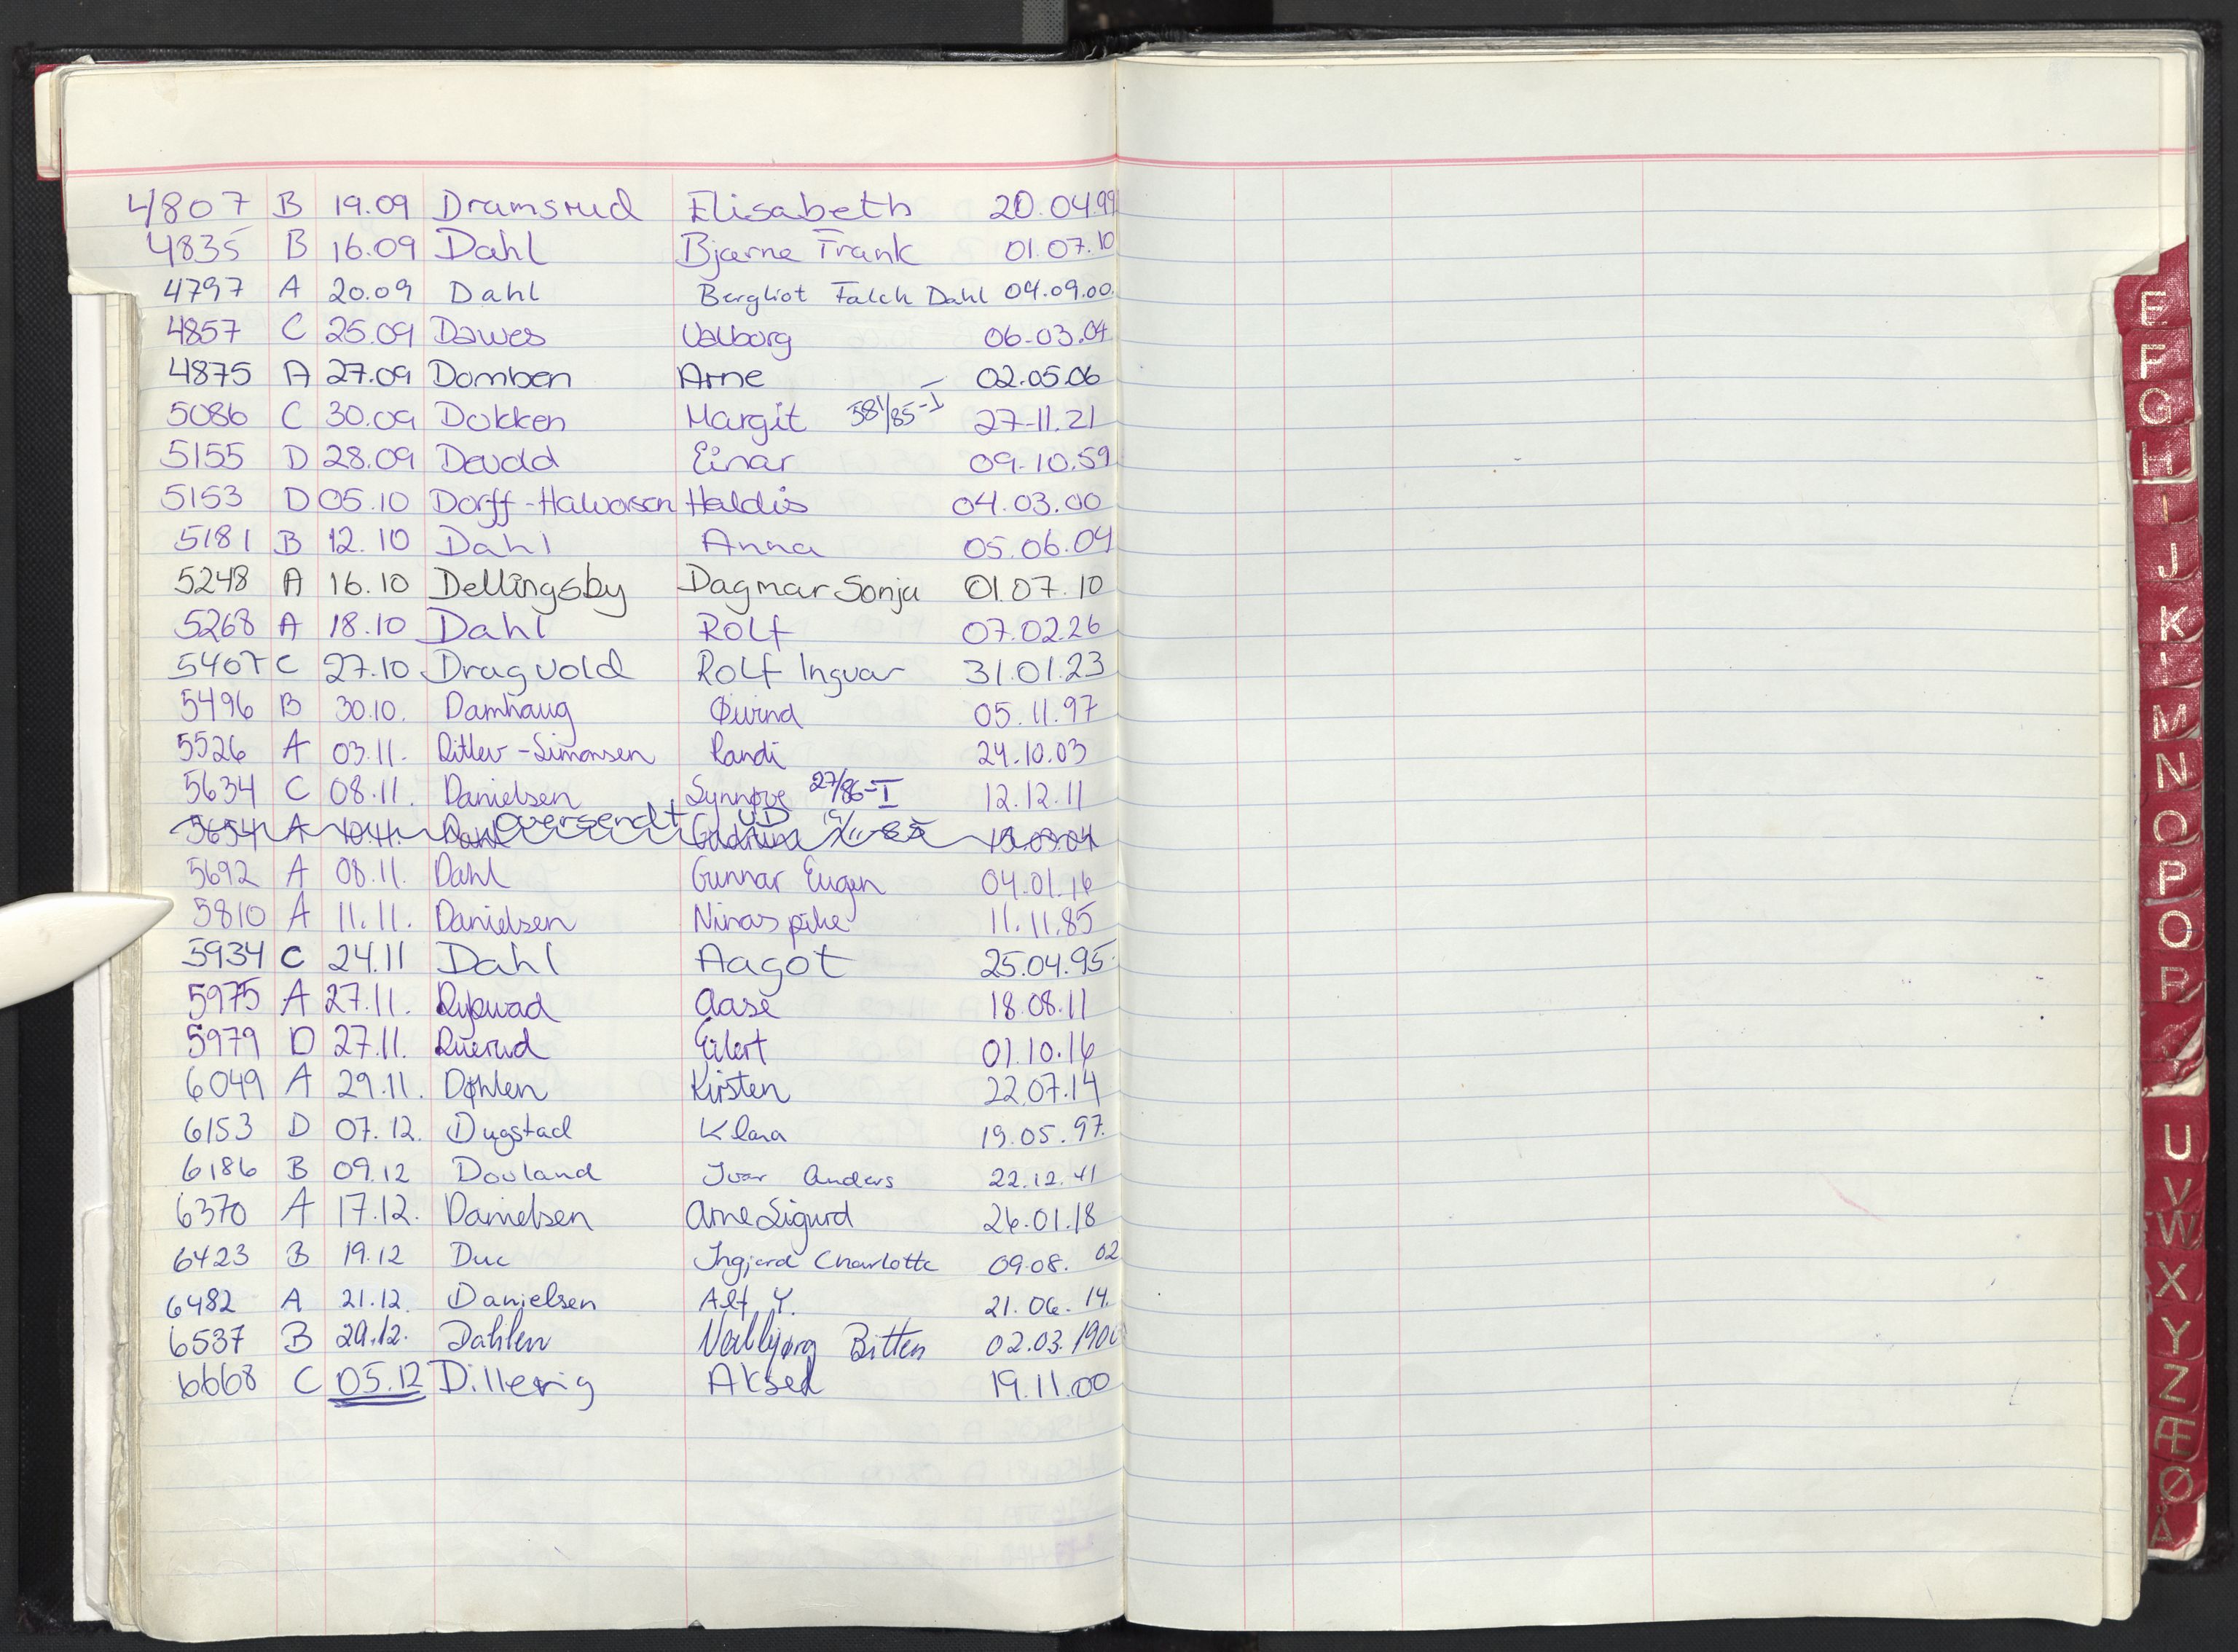 4807 B 19.09 Dramsrud Elisabeth 20.04.99
4835 B 16.09 Dahl Bjarne Frank 01.07.10
4797 A 20.09 Dahl Bergliot Falch Dahl 04.09.00.
4857 C 25.09 Dawes Valborg 06-03.04
4875 A 27.09 Domben Arne 02.05.06
5086 C 30.09 Dokken Margit 381/85-I 27-11.21
5155 D 28.09 Einar 09-10.59
5153 D 05.10 Dorff-Halvorsen Haldis 04.03.00
5181 B 12.10 Dahl Anna 05.06.04
5248 A 16.10 Dellingsby Dagmar Sonja 01.07.10
5268 A 18.10 Dahl Rolf 07.02.26
5407 C 27.10 Dragvold Rolf Ingvar 31.01.23
5496 B 30.10. Damhaug Øivind 05.11.97
5526 A 03.11. Ditlev-Simonsen Randi 24.10.03
5634 C 08.11. Danielsen Synnøve 27/86-I 12.12.11
5654 A 10.11. Dahl oversendt UD
5692 A 08.11. Dahl Gunnar Eugen 04.01.16
5810 A 11.11. Danielsen Ninas pike 11.11.85
5934 C 24.11 Dahl Aagot 25.04.95
5975 A 27.11. Aase 18.08.11
5979 D 27.11. Eilert 01.10.16
6049 A 29.11. Døhlen Kirsten 22.07.14
6153 D 07.12. Dugstad Klara 19.05.97.
6186 B 09.12 Dovland Ivar Anders 22.12.41
6370 A 17.12. Danielsen Arne Sigurd 26.01.18
6423 B 19.12 Due Ingjerd Charlotte 09.08.02
6482 A 21.12. Danielsen Alf Y. 21.06.14.
6537 B 29.12. Dahlen Valbjørg Bitten 02.03.1900
6668 C 05.12 Dillevig Aksel 19.11.00
E
F
G
H
I
J
K
M
N
O
P
Q
R
U
V
W
X
Y
Z
Æ
Ø
Å